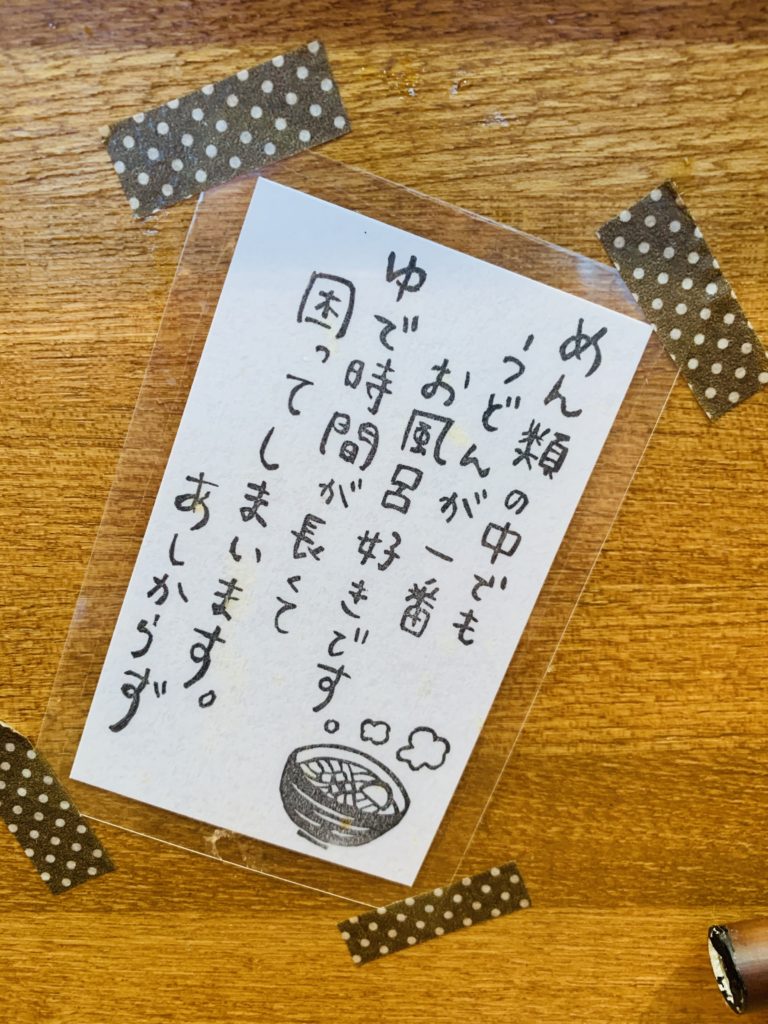 めん類の中でも
うどんが一番
お風呂好きです。
ゆで時間が長くて
困ってしまいます。
あしからず